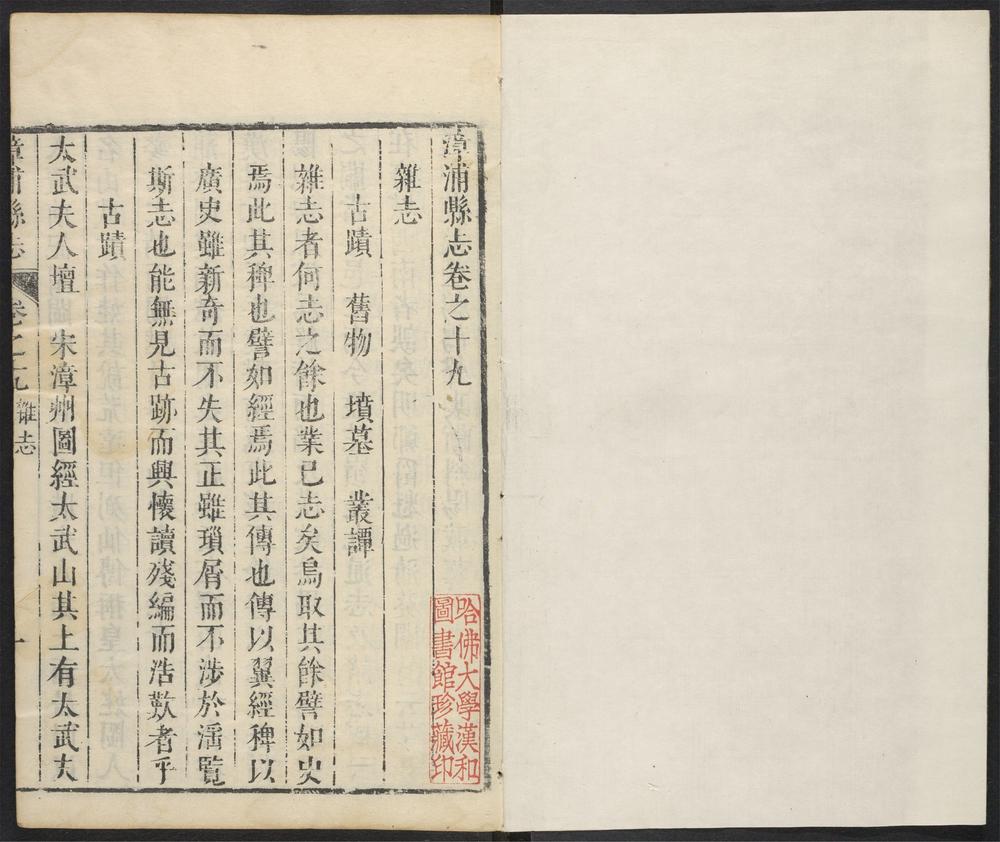 漳浦縣志卷之十九
雜志
古蹟 舊物 墳墓 叢譚
雜志者何志之餘也業已志矣烏取其餘譬如史
焉此其稗也譬如經焉此其傳也傳以翼經稗以
廣史雖新奇而不失其正雖瑣屑而不涉於滛覽
斯志也能無見古跡而興懷讀殘編而浩歎者乎
古蹟
太武夫人壇 宋漳州圖經太武山其上有太武夫
漳浦縣志 卷之十九 雜志 一
哈佛大學漢和
圖書館珍藏印